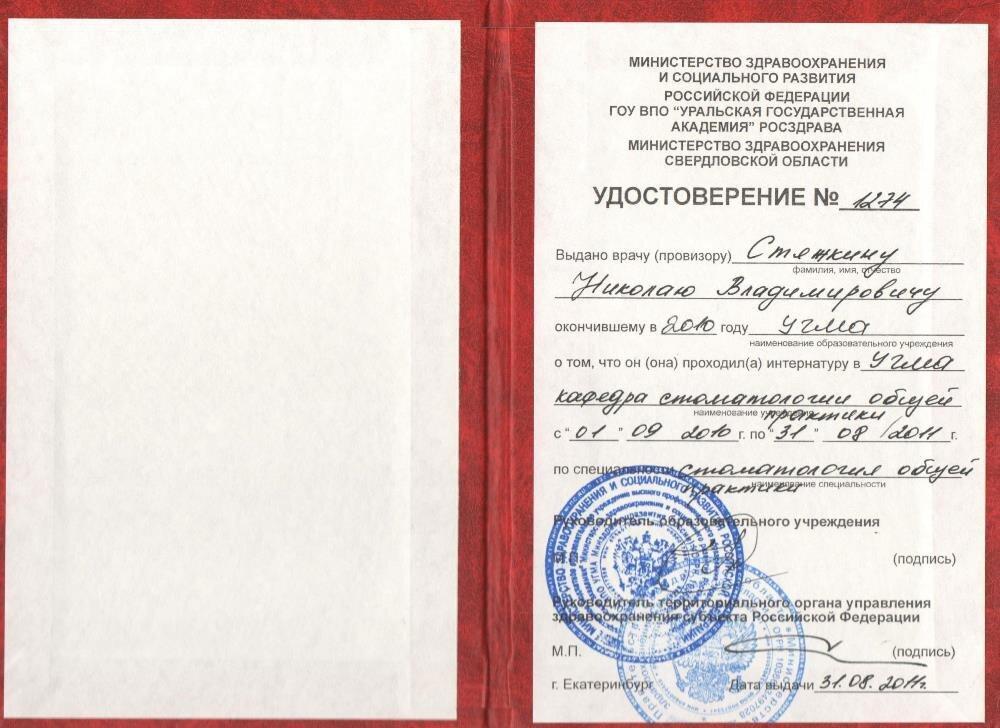 МИНИСТЕРСТВО ЗДРАВООХРАНЕНИЯ
И СОЦИАЛЬНОГО РАЗВИТИЯ
РОССИЙСКОЙ ФЕДЕРАЦИИ
ГОУ ВПО “УРАЛЬСКАЯ ГОСУДАРСТВЕННАЯ
АКАДЕМИЯ” РОСЗДРАВА
МИНИСТЕРСТВО ЗДРАВООХРАНЕНИЯ
СВЕРДЛОВСКОЙ ОБЛАСТИ
УДОСТОВЕРЕНИЕ № 1274
Выдано врачу (провизору) Стяжкину
фамилия, имя, отчество
Николаю Владимировичу
окончившему в 2010 году УГМА
наименование образовательного учреждения
о том, что он (она) проходил(а) интернатуру в УГМА
кафедра стоматологии общей
наименование учреждения
практики
с “01” 09 2010 г. по “31” 08 2011 г.
по специальности стоматология общей
наименование специальности
практики
Руководитель образовательного учреждения
М.П. (подпись)
Руководитель территориального органа управления
здравоохранения субъекта Российской Федерации
М.П. (подпись)
г. Екатеринбург Дата выдачи 31.08.2011г.